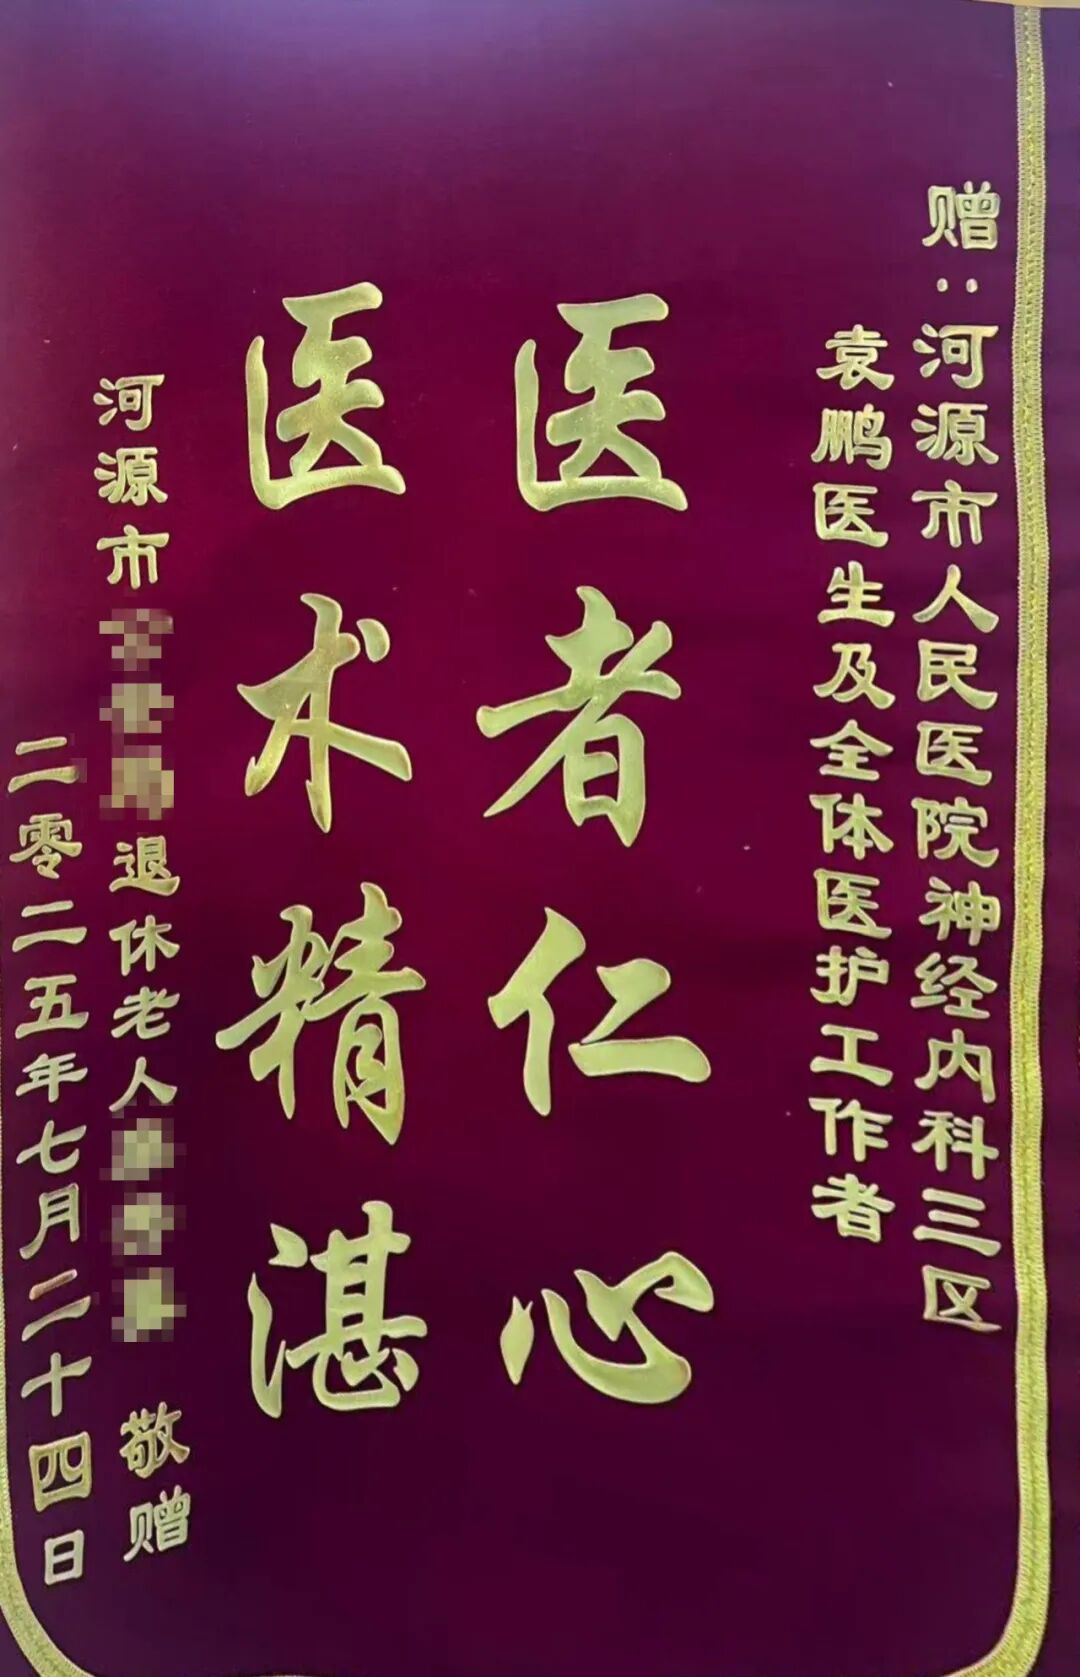 赠：河源市人民医院神经内科三区
袁鹏医生及全体医护工作者
医者仁心
医术精湛
河源市 退休老人 敬赠
二零二五年七月二十四日